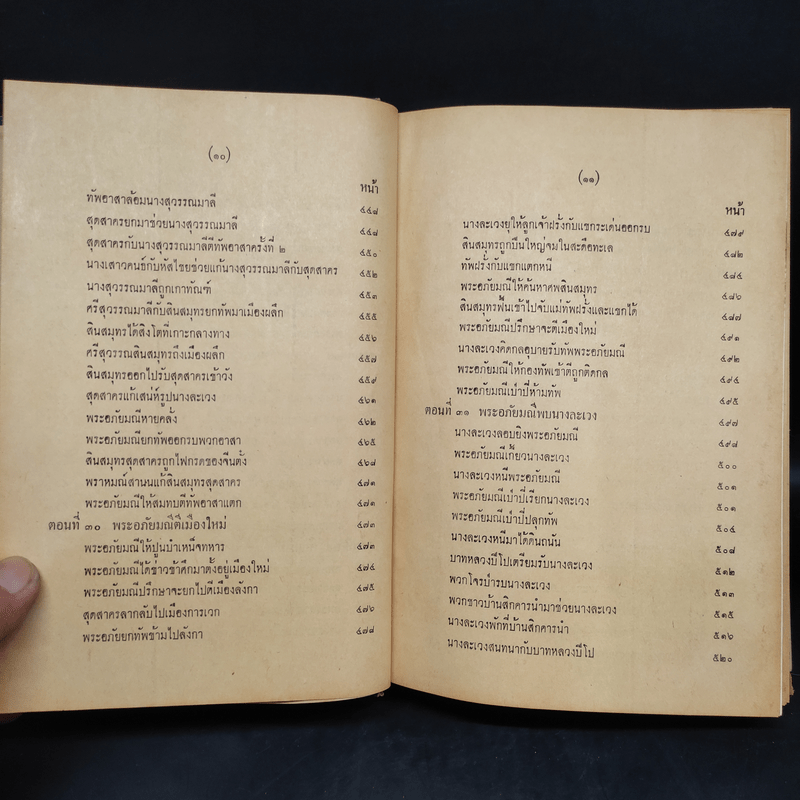 (๑๐)
หน้า
ทัพอาสาล้อมนางสุวรรณมาลี ๔๔๗
สุดสาครยกมาช่วยนางสุวรรณมาลี ๔๔๘
สุดสาครกับนางสุวรรณมาลีตีทัพอาสาครั้งที่ ๒ ๔๕๐
นางเสาวคนธ์กับหัสไชยช่วยแก้นางสุวรรณมาลีกับสุดสาคร ๔๕๒
นางสุวรรณมาลีถูกเกาทัณฑ์ ๔๕๓
ศรีสุวรรณมาลีกับสินสมุทรยกทัพมาเมืองผลึก ๔๕๕
สินสมุทรได้สิงโตที่เกาะกลางทาง ๔๕๖
ศรีสุวรรณสินสมุทรถึงเมืองผลึก ๔๕๗
สินสมุทรออกไปรับสุดสาครเข้าวัง ๔๕๙
สุดสาครแก้เสน่ห์รูปนางละเวง ๔๖๑
พระอภัยมณีหายคลั่ง ๔๖๒
พระอภัยมณียกทัพออกรบพวกอาสา ๔๖๕
สินสมุทรสุดสาครถูกไฟกรดของจีนตั้ง ๔๖๘
พราหมณ์สานนแก้สินสมุทรสุดสาคร ๔๗๑
พระอภัยมณีให้สมทบตีทัพอาสาแตก ๔๗๑
ตอนที่ ๓๐ พระอภัยมณีตีเมืองใหม่ ๔๗๓
พระอภัยมณีให้ปูนบำเหน็จทหาร ๔๗๓
พระอภัยมณีได้ข่าวข้าศึกมาตั้งอยู่เมืองใหม่ ๔๗๔
พระอภัยมณีปรึกษาจะยกไปตีเมืองลังกา ๔๗๕
สุดสาครลากลับไปเมืองการเวก ๔๗๖
พระอภัยยกทัพข้ามไปลังกา ๔๗๘
(๑๑)
หน้า
นางละเวงยุให้ลูกเจ้าฝรั่งกับแขกระเด่นออกรบ ๔๗๙
สินสมุทรถูกปืนใหญ่จมในสะดือทะเล ๔๘๒
ทัพฝรั่งกับแขกแตกหนี ๔๘๔
พระอภัยมณีให้ค้นหาศพสินสมุทร ๔๘๖
สินสมุทรฟื้นเข้าไปจับแม่ทัพฝรั่งและแขกได้ ๔๘๗
พระอภัยมณีปรึกษาจะตีเมืองใหม่ ๔๙๑
นางละเวงคิดกลอุบายรับทัพพระอภัยมณี ๔๙๒
พระอภัยมณีให้กองทัพเข้าตีถูกติดกล ๔๙๔
พระอภัยมณีเป่าปี่ห้ามทัพ ๔๙๕
ตอนที่ ๓๑ พระอภัยมณีพบนางละเวง ๔๙๗
นางละเวงลอบยิงพระอภัยมณี ๔๙๘
พระอภัยมณีเกี้ยวนางละเวง ๕๐๐
นางละเวงหนีพระอภัยมณี ๕๐๑
พระอภัยมณีเป่าปี่เรียกนางละเวง ๕๐๑
พระอภัยมณีเป่าปี่ปลุกทัพ ๕๐๔
นางละเวงหนีมาได้ดินถนัน ๕๐๘
บาทหลวงปีโปเตรียมรับนางละเวง ๕๑๒
พวกโจรปำรบนางละเวง ๕๑๓
พวกชาวบ้านสิกคารนำมาช่วยนางละเวง ๕๑๕
นางละเวงพักที่บ้านสิกคารนำ ๕๑๖
นางละเวงสนทนากับบาทหลวงปีโป ๕๒๐